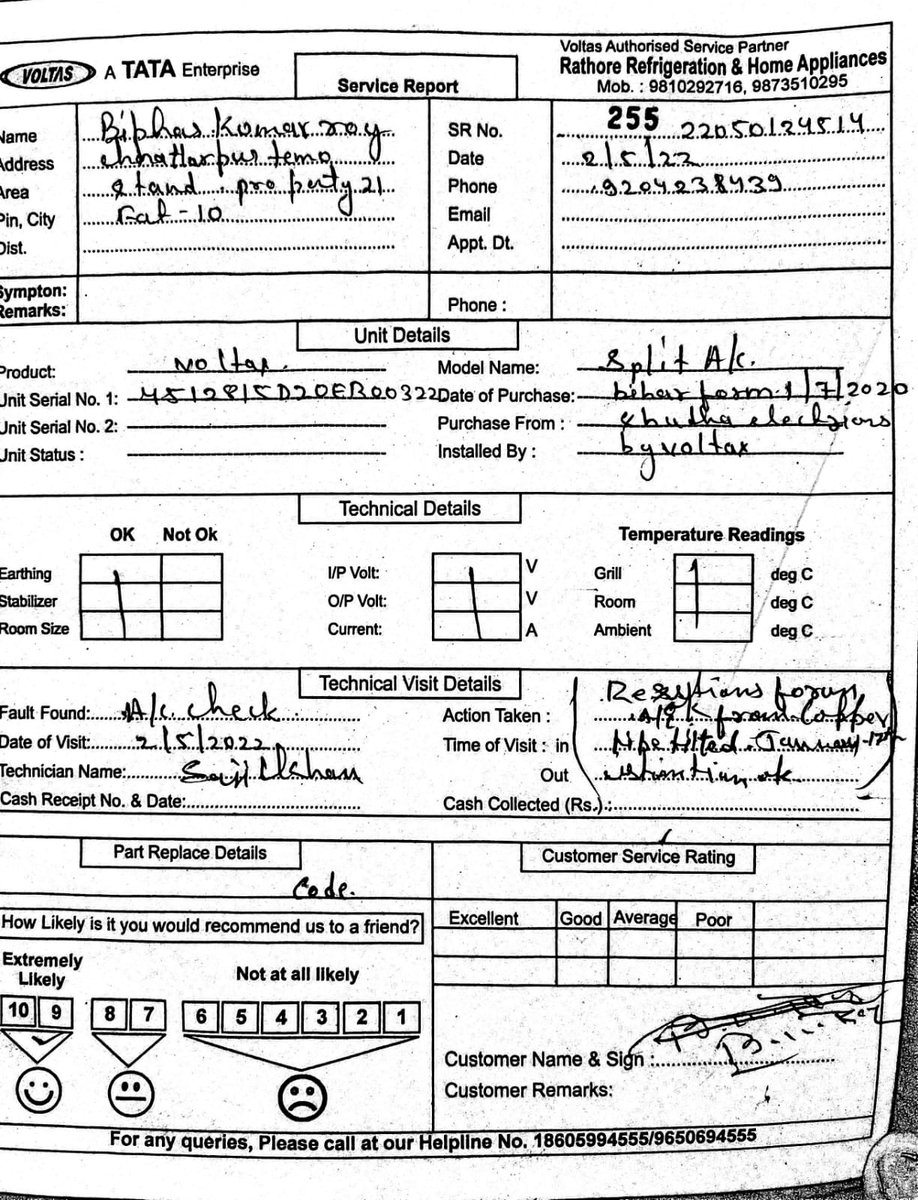 VOLTAS A TATA Enterprise
Service Report
Voltas Authorised Service Partner
Rathore Refrigeration & Home Appliances
Mob. : 9810292716, 9873510295
Name Biphas Kumar roy
Address chhattarpur temo
Area stand. property 21
Pin, City Fat-10
Dist.
SR No. 255 22050124514
Date 2/5/22
Phone 9204238439
Email
Appt. Dt.
Sympton:
Remarks:
Phone :
Unit Details
Product: voltax
Unit Serial No. 1: 4512815D20ER00322
Unit Serial No. 2:
Unit Status :
Model Name: Split A/c.
Date of Purchase: bihar form 1/7/2020
Purchase From :
Installed By : by voltax
Technical Details
OK Not Ok
Earthing
Stabilizer
Room Size
I/P Volt: V
O/P Volt: V
Current: A
Temperature Readings
Grill deg C
Room deg C
Ambient deg C
Technical Visit Details
Fault Found: A/c. check
Date of Visit: 2/5/2022
Technician Name:
Cash Receipt No. & Date:
Action Taken : from Copper
Time of Visit : in January
Out ok
Cash Collected (Rs.) :
Part Replace Details
Code.
How Likely is it you would recommend us to a friend?
Extremely Likely
Not at all likely
10 9 8 7 6 5 4 3 2 1
Customer Service Rating
Excellent Good Average Poor
Customer Name & Sign :
Customer Remarks:
For any queries, Please call at our Helpline No. 18605994555/9650694555